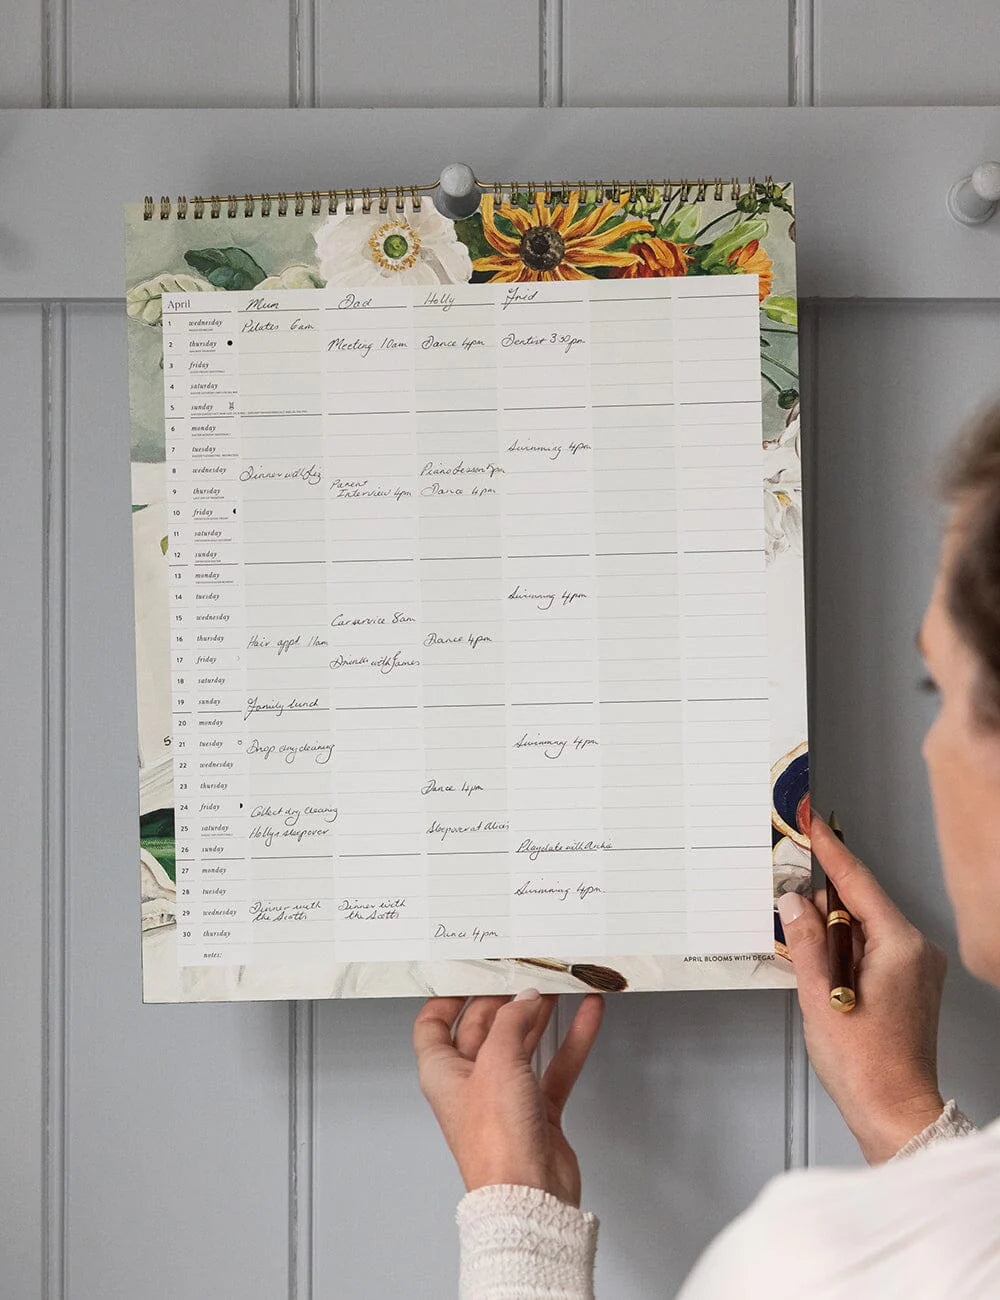 April Mum Dad Holly Fred
1 wednesday Pilates 6am
2 thursday Meeting 10am Dance 4pm Dentist 3 30pm
3 friday
4 saturday
5 sunday
6 monday
7 tuesday Swimming 4pm
8 wednesday Dinner with Liz Piano Lesson 5pm
9 thursday Parent Interview 4pm Dance 4pm
10 friday
11 saturday
12 sunday
13 monday
14 tuesday Swimming 4pm
15 wednesday Car service 8am
16 thursday Hair appt. 11am Dance 4pm
17 friday Drinks with James
18 saturday
19 sunday Family Lunch
20 monday
21 tuesday Drop dry cleaning Swimming 4pm
22 wednesday
23 thursday Dance 4pm
24 friday Collect dry cleaning
25 saturday Hollys sleepover Sleepover at Alices
26 sunday Playdate with Archie
27 monday
28 tuesday Swimming 4pm
29 wednesday Dinner with the Scotts Dinner with the Scotts
30 thursday Dance 4pm
notes:
APRIL BLOOMS WITH DEGAS